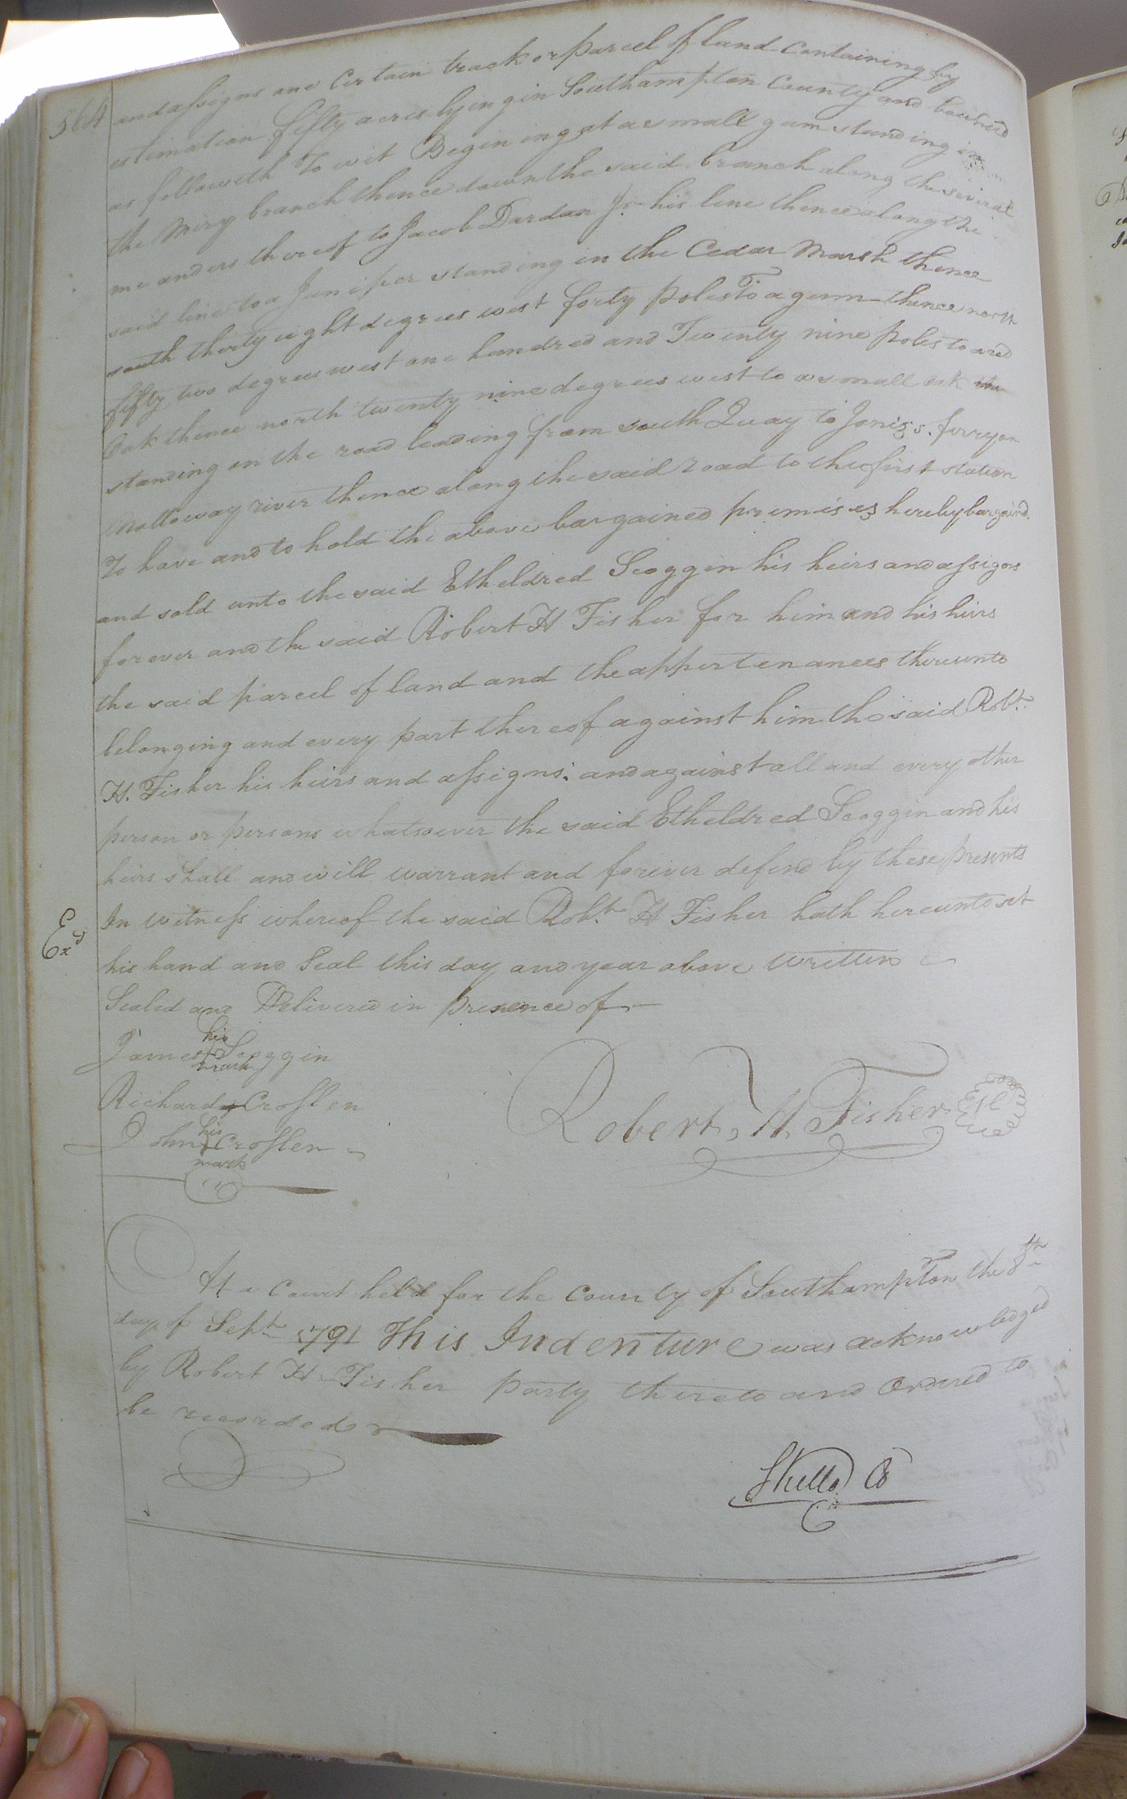 564
and assigns one Certain track or parcel of land Containing by
estimation fifty acres lying in Southampton County and bounded
as followeth To wit Begining at a small gum standing in
the Miry branch thence down the said branch along the several
meanders thereof to Jacob Dardan Jr. his line thence along the
said line to a Juniper standing in the Cedar Marsh thence
south thirty eight degrees west forty poles To a gum thence north
fifty two degrees west one hundred and Twenty nine poles to a red
Oak thence north twenty nine degrees west to a small oak
standing on the road leading from South Quay to Joness. ferry on
Nottoway river thence along the said road to the first station
To have and to hold the above bargained premises hereby bargaind.
and sold unto the said Etheldred Scoggin his heirs and assigns
forever and the said Robert H Fisher for him and his heirs
the said parcel of land and the appertenances thereunto
belonging and every part thereof against him the said Robt.
H. Fisher his heirs and assigns; and against all and every other
person or persons whatsoever the said Etheldred Scoggin and his
heirs shall and will warrant and forever defend by these presents
In witness whereof the said Robt. H Fisher hath hereunto set
Exd
his hand and Seal this day and year above written
Sealed and Delivered in presence of
his
James Scoggin
mark
Richard Croflen
his
John Croflen
mark
Robert, H, Fisher
At a Court held for the County of Southampton the 8th
day of Sept. 1791 This Indenture was acknowledged
by Robert H Fisher party thereto and Ordered to
be recorded